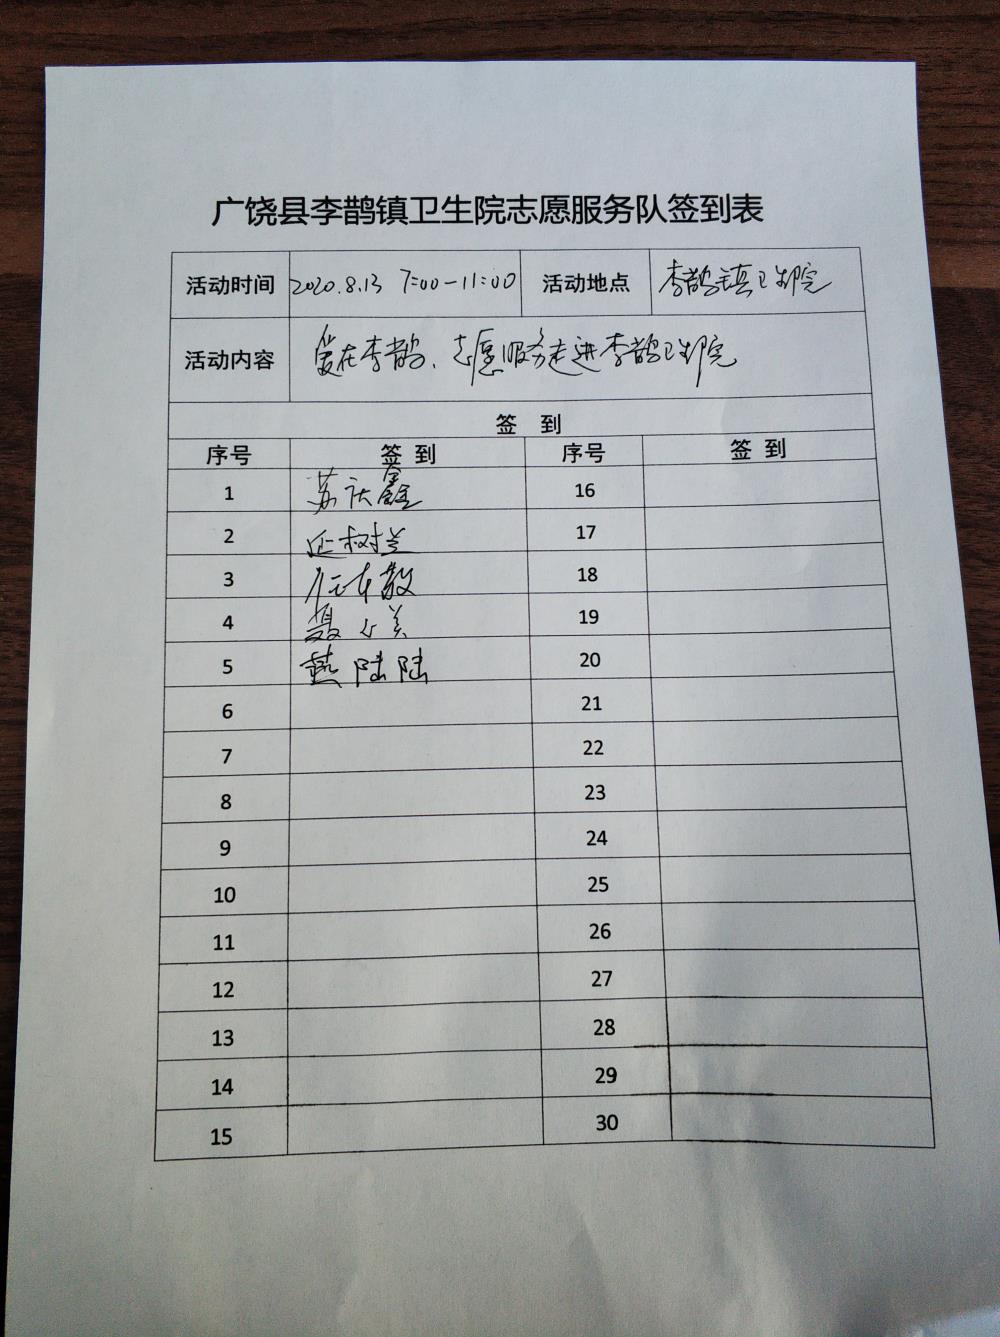 广饶县李鹊镇卫生院志愿服务队签到表
活动时间 2020.8.13 7:00-11:00 活动地点 李鹊镇卫生院
活动内容 爱在李鹊、志愿服务走进李鹊卫生院
签 到
序号 签 到 序号 签 到
1 苏庆鑫 16
2 延树兰 17
3 18
4 聂 19
5 燕陆陆 20
6 21
7 22
8 23
9 24
10 25
11 26
12 27
13 28
14 29
15 30